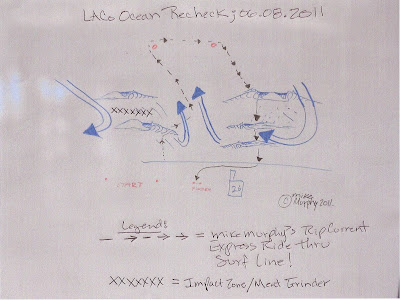 LACo Ocean Recheck; 06.08.2011
O O
XXXXXXX
START
FINISH
26
© Mike Murphy 2011.
Legends
= Mike Murphy's Rip Current
Express Ride thru
Surf Line!
XXXXXXX = Impact Zone/Meat Grinder